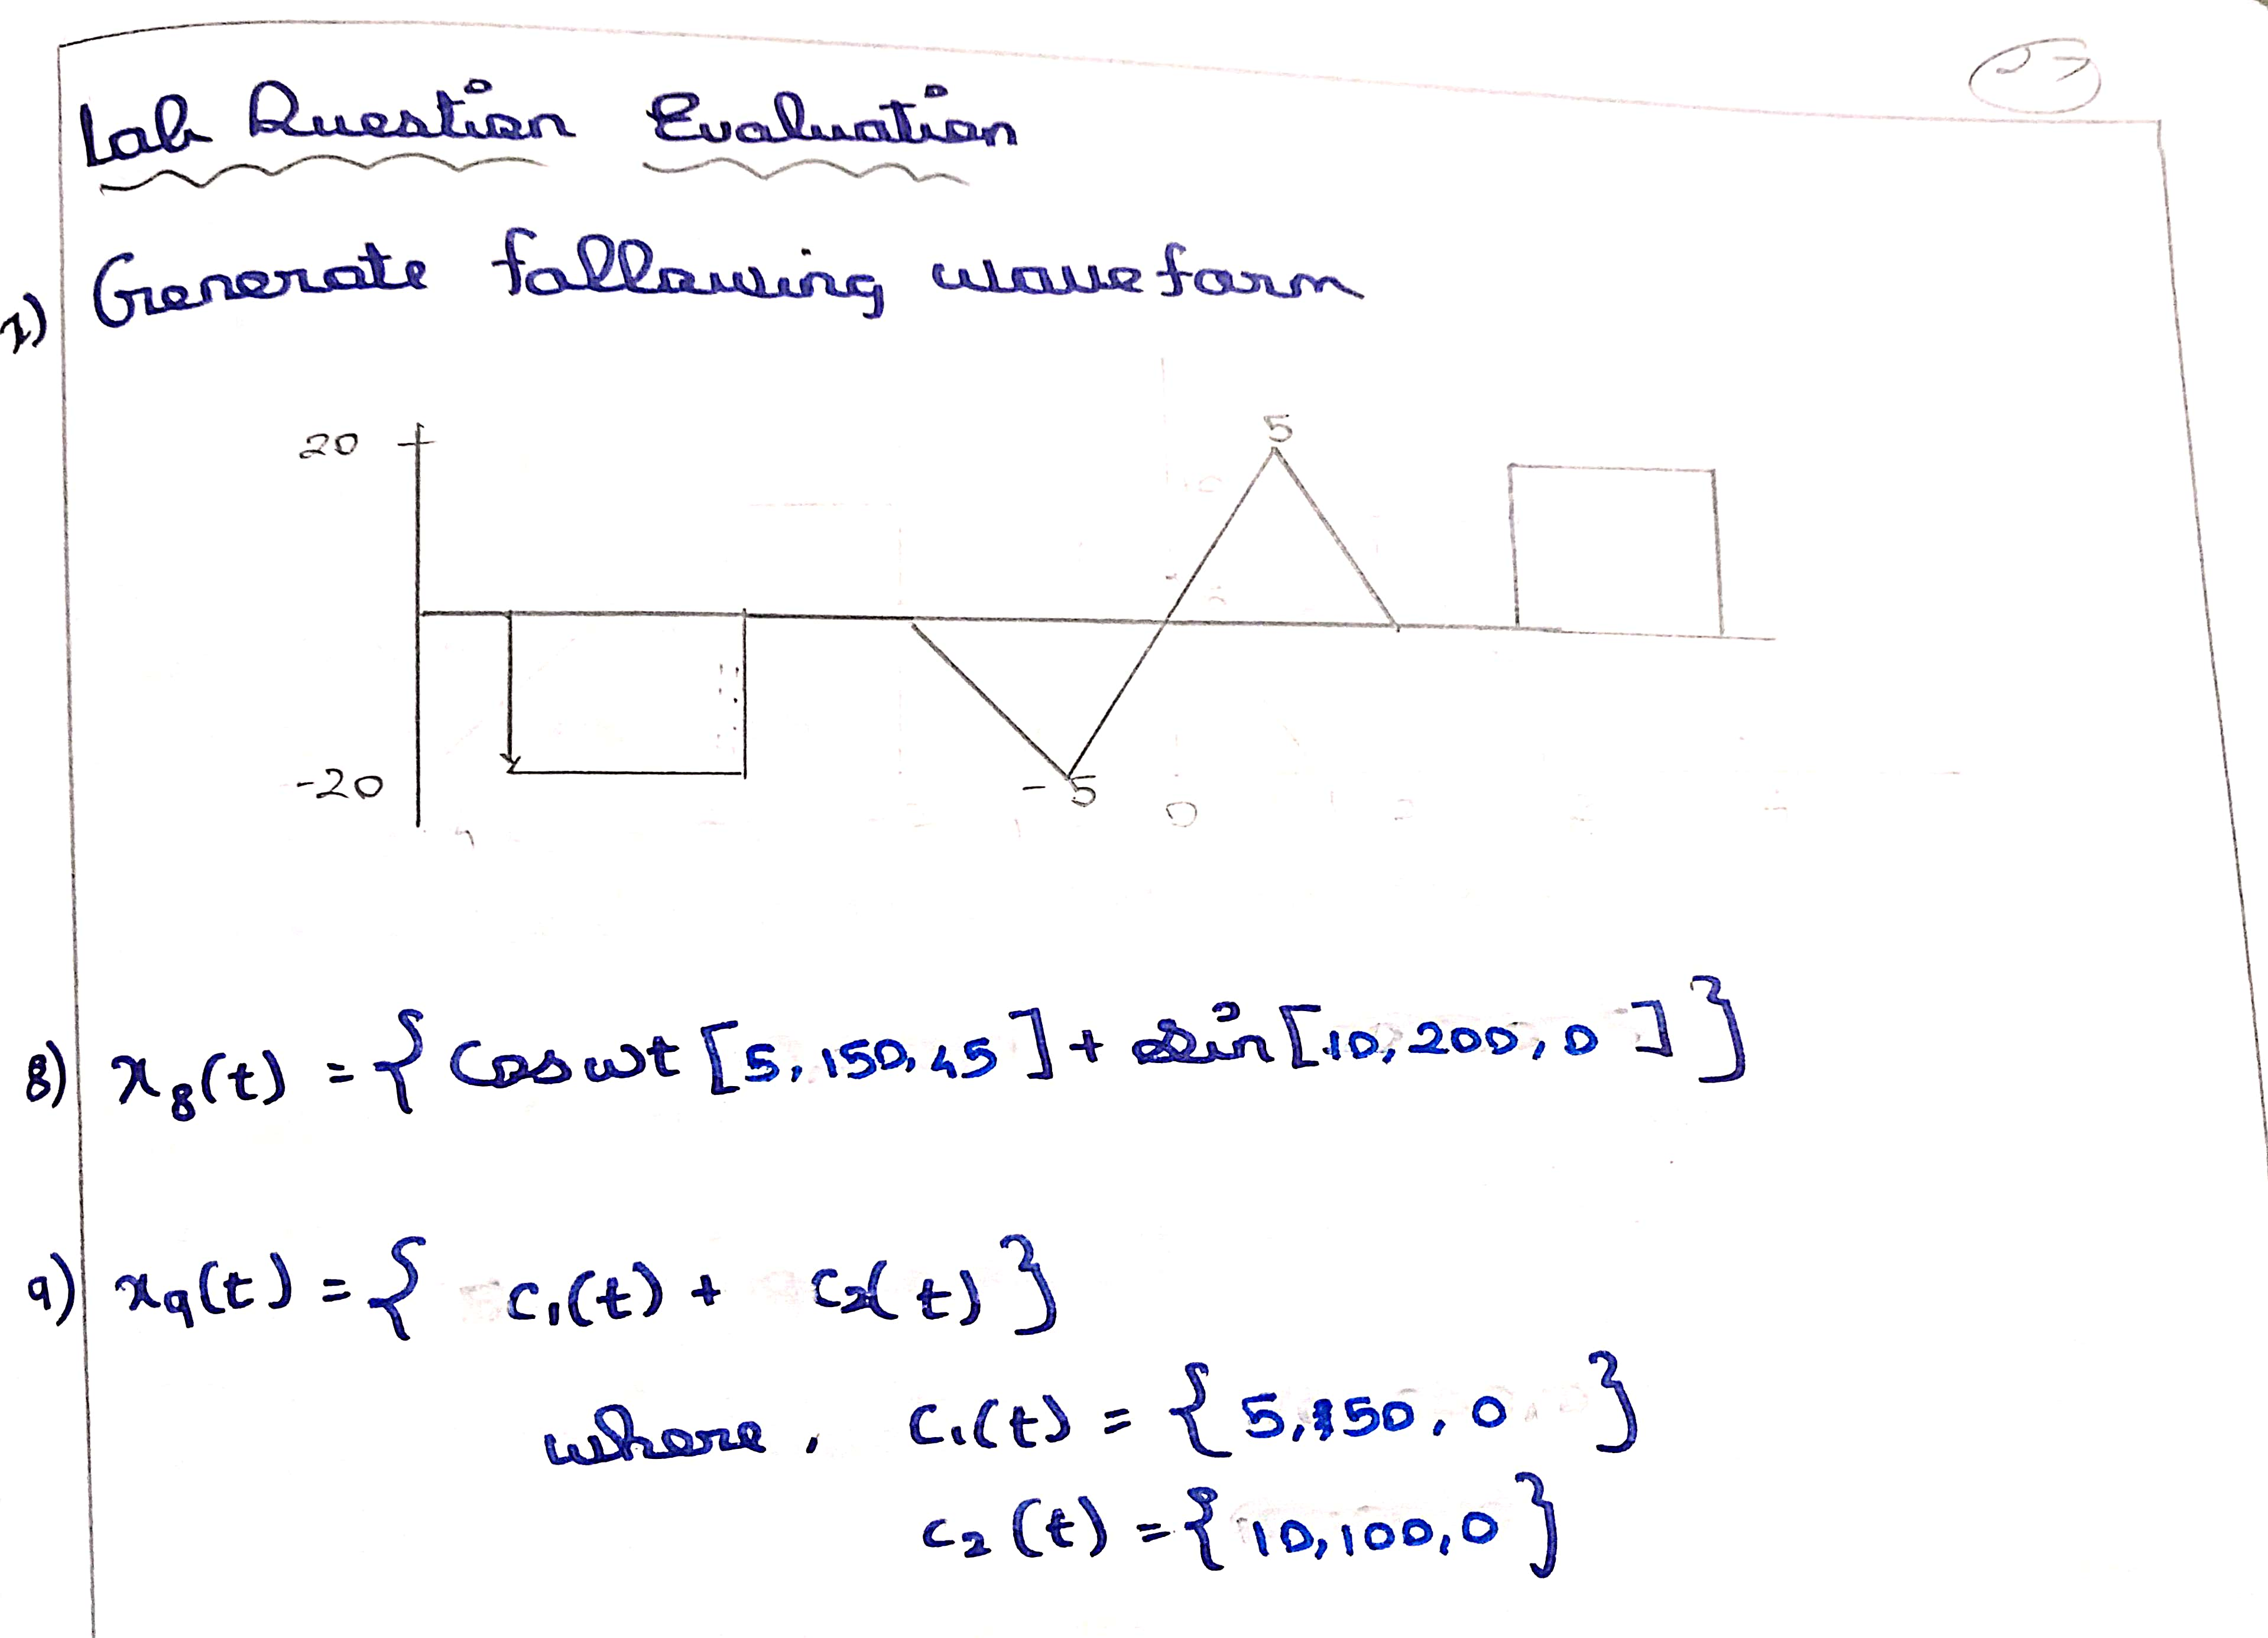 Lab Question Evaluation
7) Generate following waveform
20
5
-20
-5
0
8) x₈(t) = { Cos wt [5, 150, 45] + sin [10, 200, 0] }
9) x₉(t) = { c₁(t) + c₂(t) }
where, c₁(t) = { 5, 150, 0 }
c₂(t) = { 10, 100, 0 }